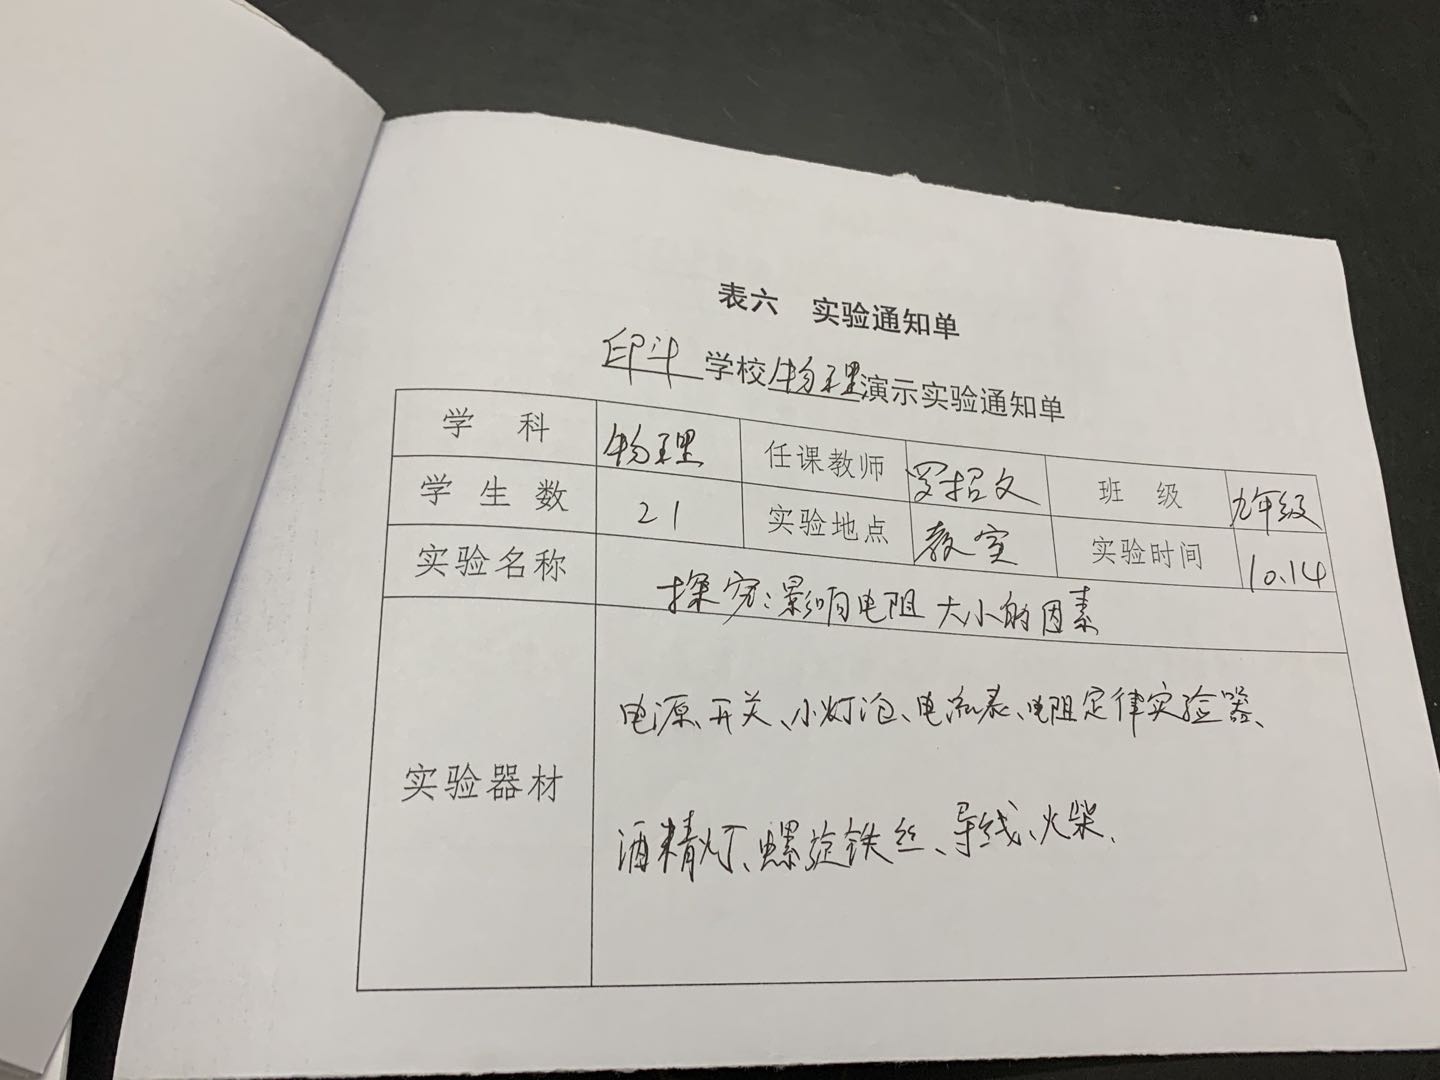 表六 实验通知单
印斗学校物理演示实验通知单
学 科 物理 任课教师 罗招文 班 级 九年级
学 生 数 21 实验地点 教室 实验时间 10.14
实验名称 探究:影响电阻大小的因素
实验器材
电源、开关、小灯泡、电流表、电阻定律实验器、
酒精灯、螺旋铁丝、导线、火柴.